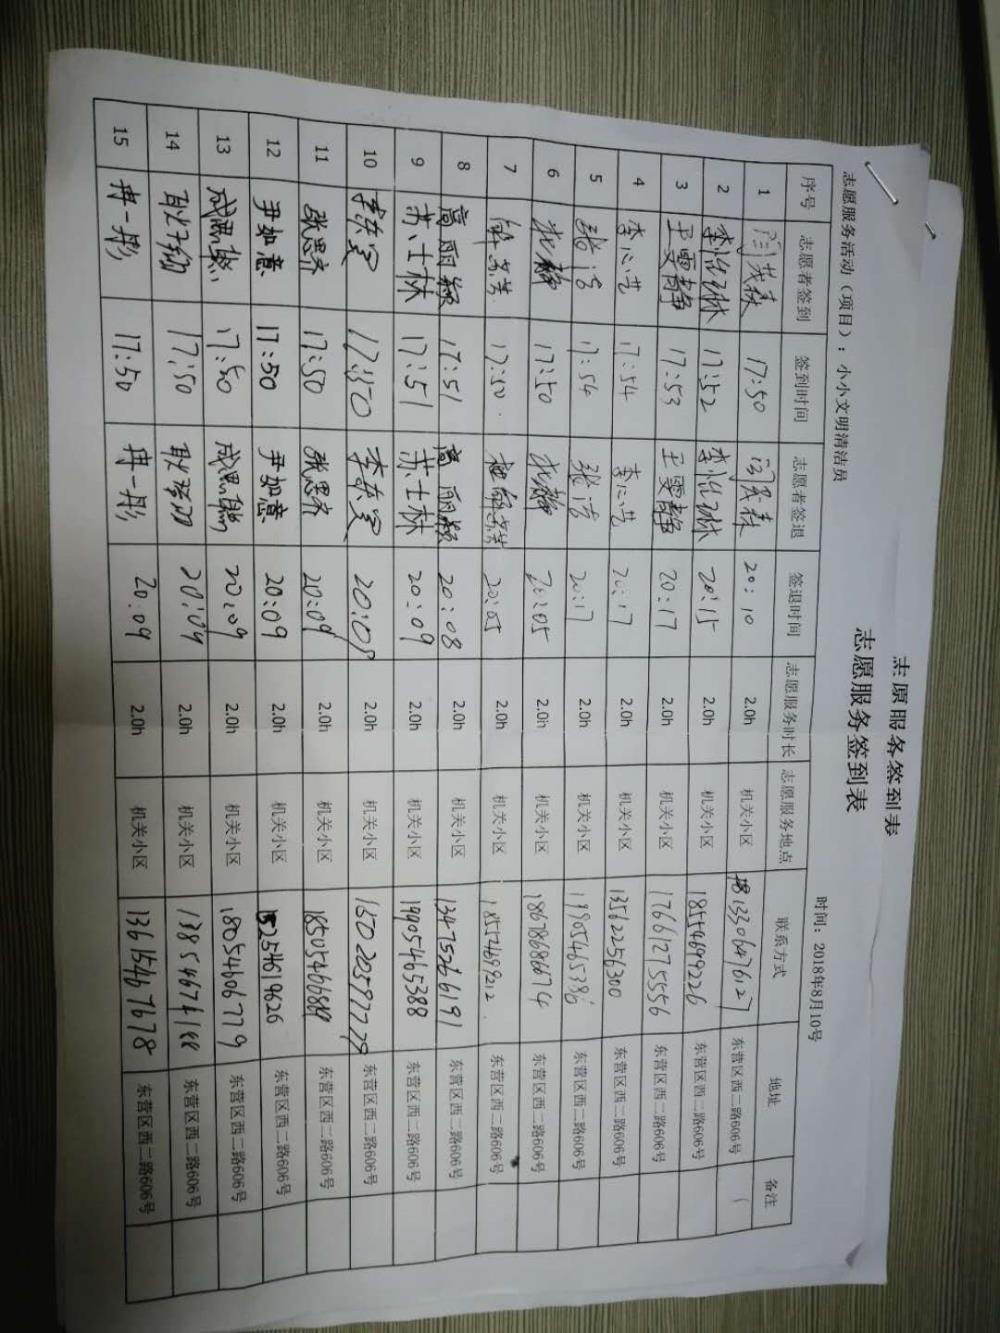 志愿服务签到表
志愿服务签到表
志愿服务活动（项目）：小小文明清洁员 时间：2018年8月10号
序号 志愿者签到 签到时间 志愿者签退 签退时间 志愿服务时长 志愿服务地点 联系方式 地址 备注
1 17:50 20:10 2.0h 机关小区 13306476127 东营区西二路606号
2 李怡琳 17:52 李怡琳 20:15 2.0h 机关小区 18554699226 东营区西二路606号
3 王雯静 17:53 王雯静 20:17 2.0h 机关小区 17661275556 东营区西二路606号
4 李心艺 17:54 李心艺 20:17 2.0h 机关小区 13562256300 东营区西二路606号
5 张浩 17:54 张浩 20:17 2.0h 机关小区 东营区西二路606号
6 17:50 20:05 2.0h 机关小区 18678686674 东营区西二路606号
7 17:50 20:05 2.0h 机关小区 东营区西二路606号
8 高丽颖 17:51 高丽颖 20:08 2.0h 机关小区 13475266191 东营区西二路606号
9 苏士林 17:51 苏士林 20:09 2.0h 机关小区 19905465388 东营区西二路606号
10 17:50 20:09 2.0h 机关小区 东营区西二路606号
11 张思齐 17:50 张思齐 20:09 2.0h 机关小区 东营区西二路606号
12 尹如意 17:50 尹如意 20:09 2.0h 机关小区 15254619626 东营区西二路606号
13 17:50 20:09 2.0h 机关小区 18054606779 东营区西二路606号
14 17:50 20:09 2.0h 机关小区 东营区西二路606号
15 冉一彤 17:50 冉一彤 20:09 2.0h 机关小区 13615467678 东营区西二路606号